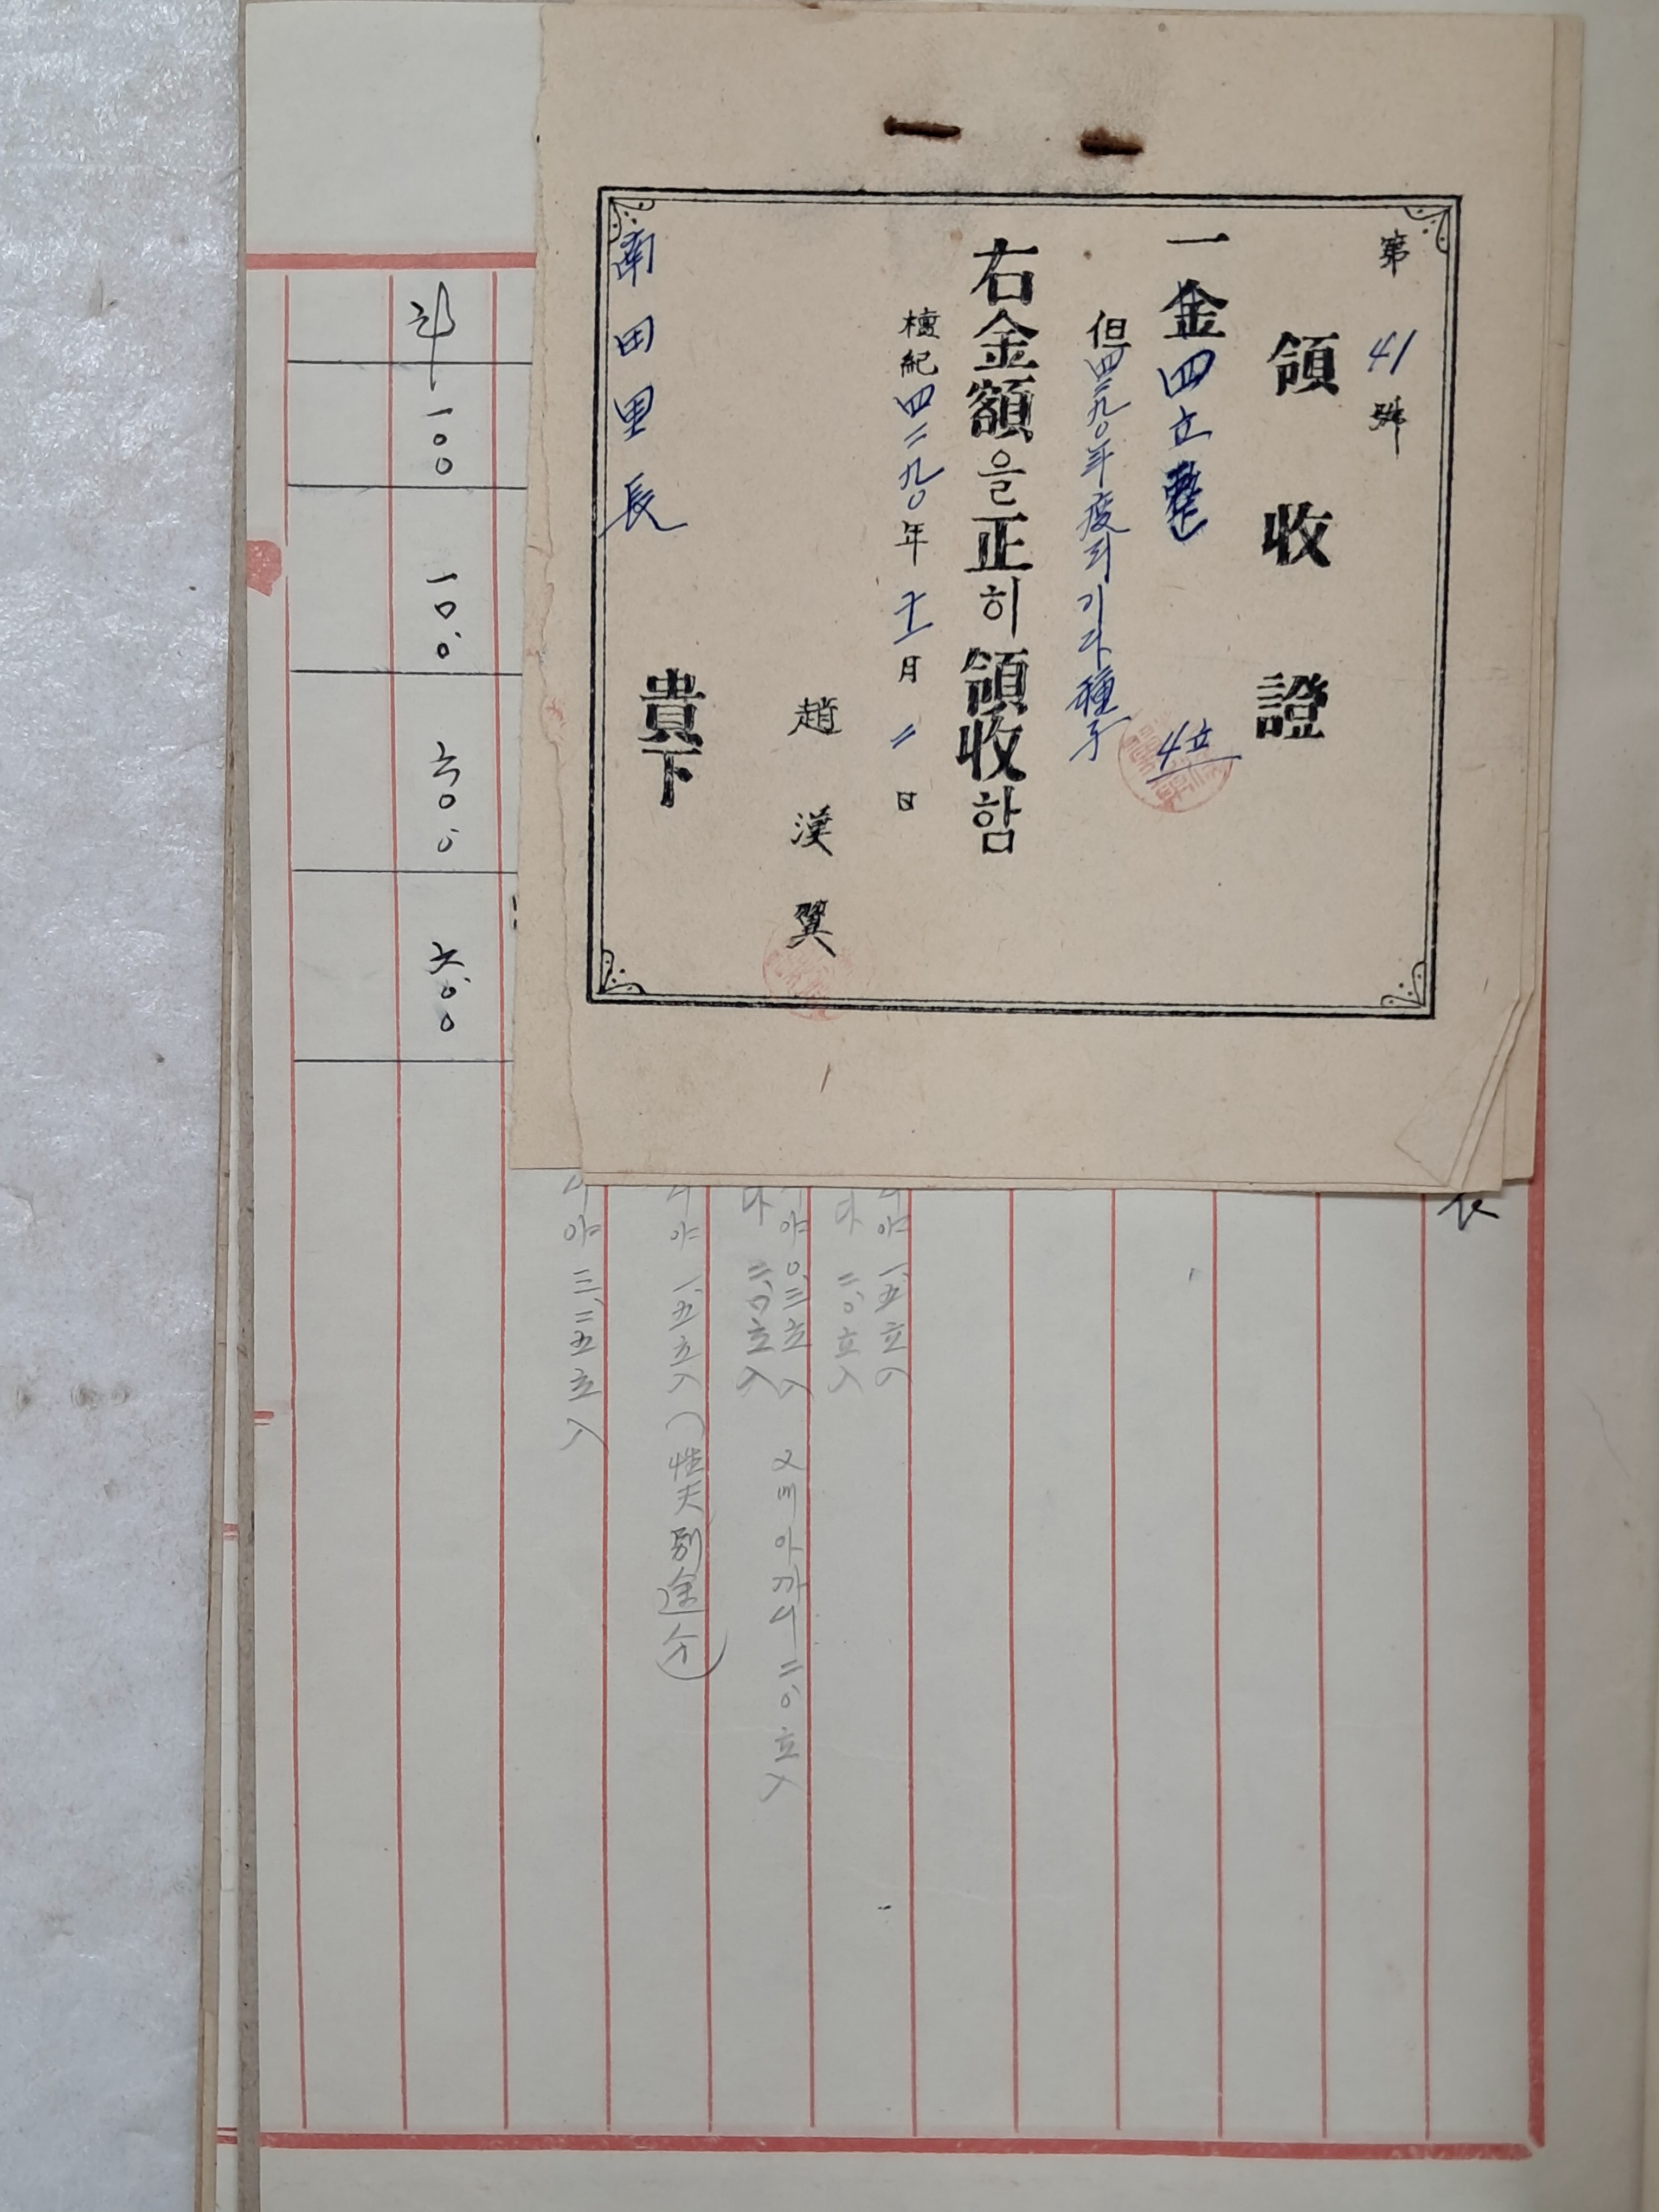 第 41 號
領收證
一金四立整
4立
但四二九〇年度리기다種子
右金額을正히領收함
檀紀四二九〇年十一月二日
趙漢翼
南田里長 貴下
야 一.五立入
다 二.〇立入
야 〇.三立入 오베아까시 二.〇立入
다 二.〇立入
야 一.五立入 (性天別途分)
야 三.二五立入
一〇〇
一〇.〇
六.〇〇